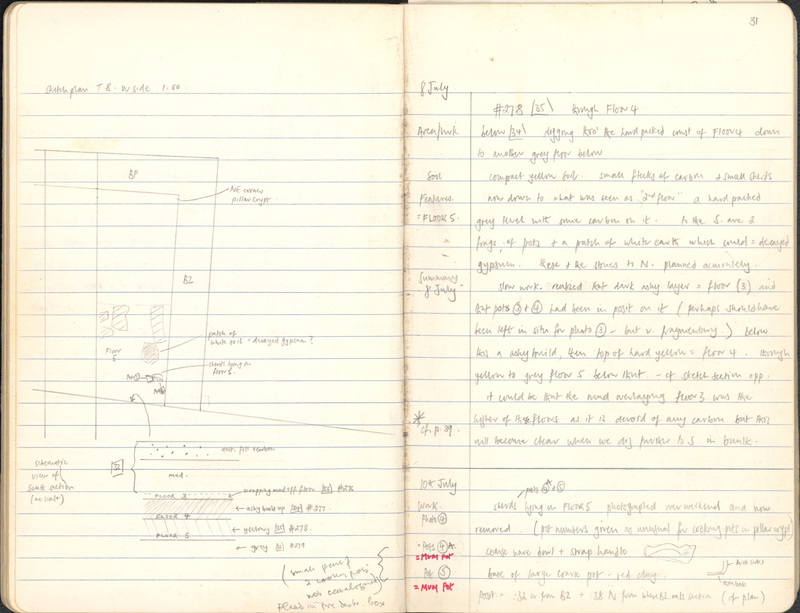 Sketch plan T8. W side 1:50
BP
NE corner
pillar crypt
B2
patch of
white soil = decayed gypsum?
Floor
5
sherds lying on
floor 5.
schematic
view of
South section
(no scale)
mud.
FLOOR 3
scraping mud off floor
ashy build up #277
FLOOR 4
yellow #278
FLOOR 5
grey #279
(small piece of
2 cooker pots
not catalogued
31
8 July
#278 /35\ through Floor 4
Area/work
below /34\ digging thro' the hard packed crust of Floor 4 down
to another grey floor below
Soil
compact yellow soil. small flecks of carbon + small sherds
Features
now down to what was seen as "2nd floor" a hard packed
= FLOOR 5.
grey level with some carbon on it. To the S. are 2
frags. of pots + a patch of white earth which could = decayed
gypsum. These + the stones to N. planned accurately.
Summary
8 July
slow work. realized that dark ashy layer = floor (3) and
that pots ③ + ④ had been in posit on it (perhaps should have
been left in situ for photo ③ - but v. fragmentary) below
this a ashy build, then top of hard yellow = floor 4. through
yellow to grey floor 5 below that. - cf sketch section opp.
it could be that the mud overlaying floor 3 was the
* cf. p. 39.
higher of these floors as it is devoid of any carbon but this
will become clear when we dig further to S in baulk.
10th July
pots ④A + ⑤
Work
sherds lying in Floor 5 photographed over weekend and now
Photo ④
removed. (pot numbers given as unusual for cooking pots in pillar crypt)
- Pot ④A.
coarse ware bowl + strap handle
= MUM Pot
Pot ⑤
base of large coarse pot - red clay.
= MUM Pot